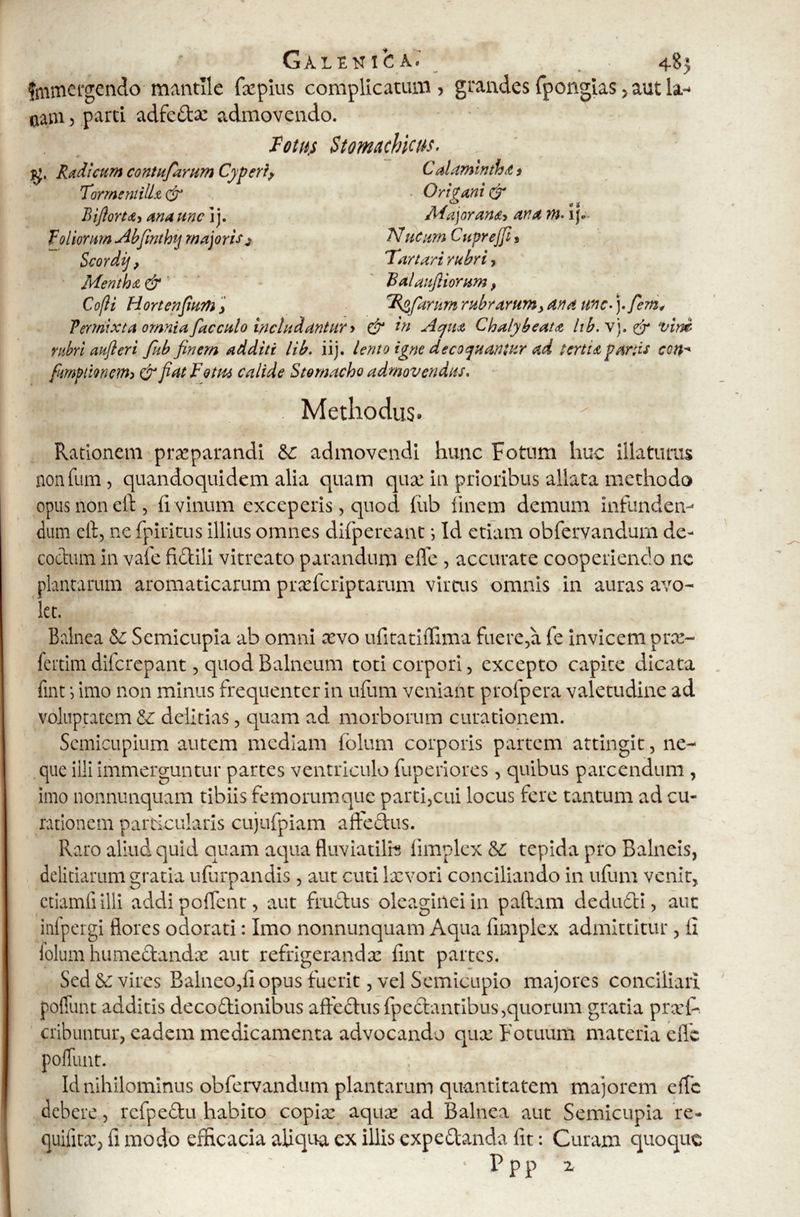 GALENICA. 483
immergendo mantile sæpius complicatum, grandes spongias, aut la-
nam, parti adfectæ admovendo.
Fotus Stomachicus.
℞. Radicum contusarum Cyperi,
Tormentillæ &
Bistortæ, ana unc ij.
Foliorum Absinthij majoris,
Scordij,
Menthæ &
Costi Hortensium,
Calaminthæ,
Origani &
Majoranæ, ana m. ij.
Nucum Cupressi,
Tartari rubri,
Balaustiorum,
Rosarum rubrarum, ana unc. j. sem.
Permixta omnia sacculo includantur, & in Aquæ Chalybeatæ lib. vj. & vini
rubri austeri sub finem additi lib. iij. lento igne decoquantur ad tertiæ partis con-
sumptionem, & fiat Fotus calide Stomacho admovendus.
Methodus.
Rationem præparandi & admovendi hunc Fotum huc illaturus
non sum, quandoquidem alia quam quæ in prioribus allata methodo
opus non est, si vinum exceperis, quod sub finem demum infunden-
dum est, ne spiritus illius omnes dispereant; Id etiam observandum de-
coctum in vase fictili vitreato parandum esse, accurate cooperiendo ne
plantarum aromaticarum præscriptarum virtus omnis in auras avo-
let.
Balnea & Semicupia ab omni ævo usitatissima fuere,à se invicem præ-
sertim discrepant, quod Balneum toti corpori, excepto capite dicata
sint; imo non minus frequenter in usum veniant prospera valetudine ad
voluptatem & delitias, quam ad morborum curationem.
Semicupium autem mediam solum corporis partem attingit, ne-
que illi immerguntur partes ventriculo superiores, quibus parcendum,
imo nonnunquam tibiis femorumque parti,cui locus fere tantum ad cu-
rationem particularis cujuspiam affectus.
Raro aliud quid quam aqua fluviatilis simplex & tepida pro Balneis,
delitiarum gratia usurpandis, aut cuti lævori conciliando in usum venit,
etiamsi illi addi possent, aut fructus oleaginei in pastam deducti, aut
inspergi flores odorati: Imo nonnunquam Aqua simplex admittitur, si
solum humectandæ aut refrigerandæ sint partes.
Sed & vires Balneo,si opus fuerit, vel Semicupio majores conciliari
possunt additis decoctionibus affectus spectantibus,quorum gratia præs-
cribuntur, eadem medicamenta advocando quæ Fotuum materia esse
possunt.
Id nihilominus observandum plantarum quantitatem majorem esse
debere, respectu habito copiæ aquæ ad Balnea aut Semicupia re-
quisitæ, si modo efficacia aliqua ex illis expectanda sit: Curam quoque
Ppp 2